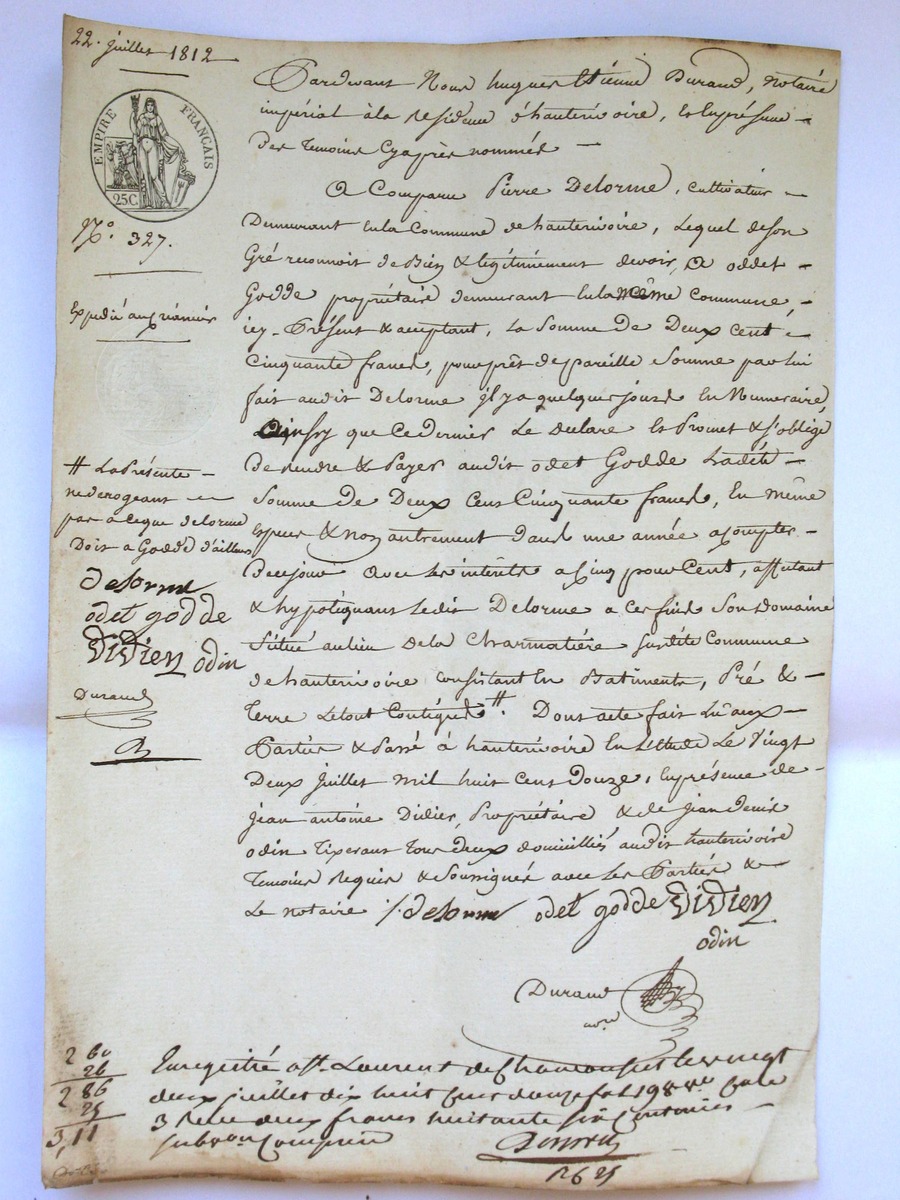 22. juillet 1812
EMPIRE FRANÇAIS
25C.
N.º 327.
Expedié au créancier
Pardevant Nous hugues Etienne Durand, Notaire
impérial à la residence d'hauterivoire, & en présence
des temoins cyaprès nommés
A Comparu Pierre Delorme, cultivateur
Demeurant en la Commune de hauterivoire, Lequel de son
Gré reconnoit de Bien & légitimement devoir, a oddet
Godde propriétaire demeurant en la même commune
icy Présent & acceptant, la somme de Deux cent
cinquante francs, pour prêt de pareille somme par lui
fait audit Delorme il y a quelques jours en Numeraire,
Ainsy que ce dernier le declare et Promet & s'oblige
De rendre & Payer audit odet Godde Ladite
Somme de Deux Cent Cinquante francs, En même
Especes & non autrement dans une année a compter
De ce jour avec les interêts a cinq pour Cent, affectant
& hypotéquant ledit Delorme a ces fins Son Domaine
Situé au lieu de la Charmatière susdite Commune
de hauterivoire consistant en Batiments, Pré &
terre Le tout Contigus #. Dont acte fait Lu aux
Parties & Passé à hauterivoire En l'Etude Le Vingt
Deux juillet mil huit Cent Douze, En présence de
jean antoine Didier, Propriétaire & de jean denis
odin Tixerant tous deux domiciliés audit hauterivoire
Temoins Requis & Soussignés avec les Parties &
Le notaire /. delorme odet godde Didier
odin
Durand
no.re
# La Présente
ne derogeant
pas a ce que delorme
Doit a Godde d'ailleurs
delorme
odet godde
Didier odin
Durand
D
2 60
26
2 86
25
3,11
Enregistré a St. Laurent de Chamousset le vingt
deux juillet dix huit cent douze fol 198 v.º case
3 Reçu deux francs huitante six centimes
subvon Comprise